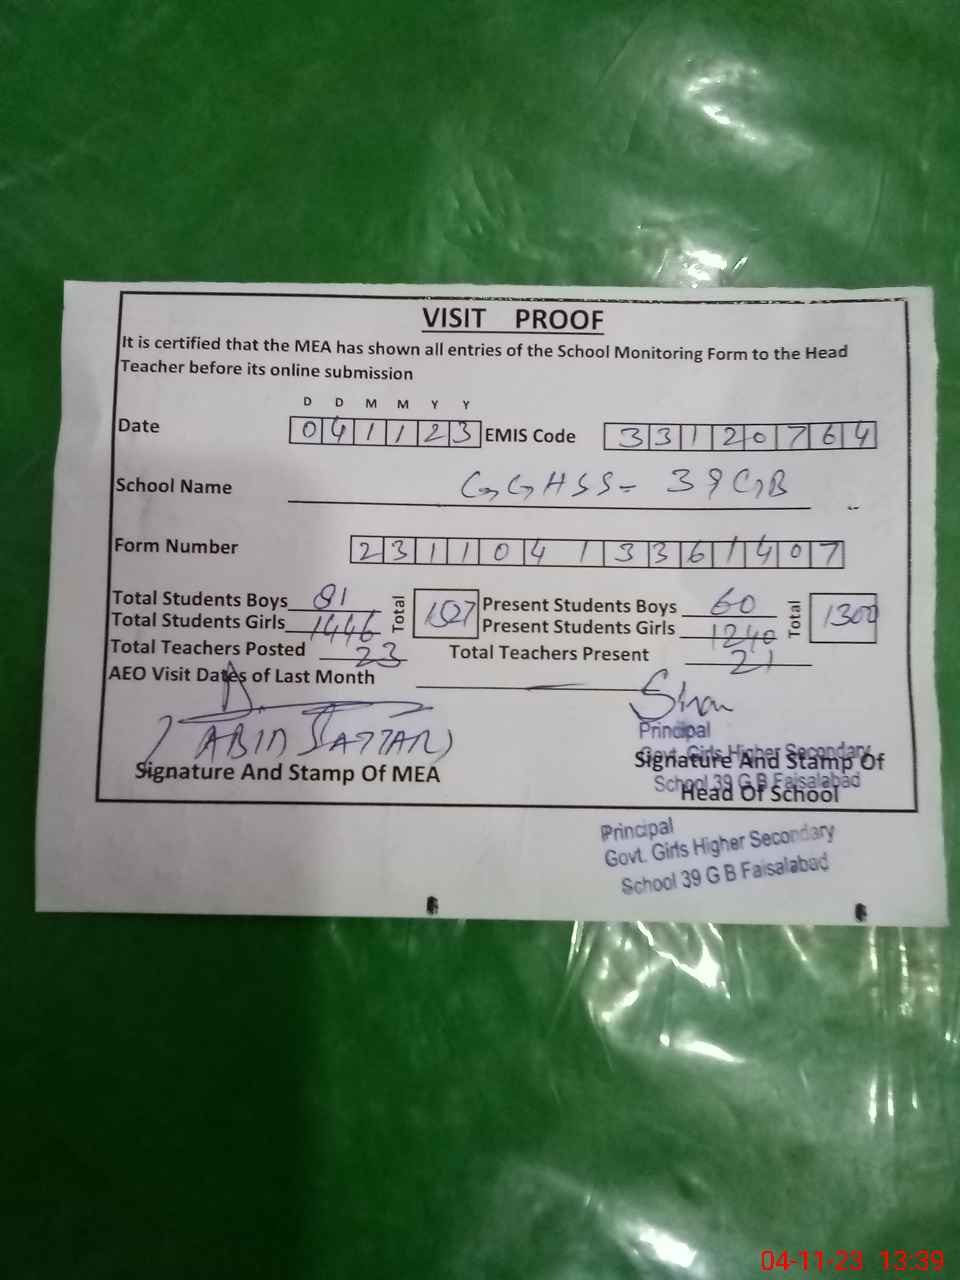 VISIT PROOF
It is certified that the MEA has shown all entries of the School Monitoring Form to the Head
Teacher before its online submission
D D M M Y Y
Date 041123 EMIS Code 33120764
School Name GGHSS- 39GB
Form Number 23110413361407
Total Students Boys 81 Total 1527 Present Students Boys 60 Total 1300
Total Students Girls 1446 Present Students Girls 1240
Total Teachers Posted 23 Total Teachers Present 21
AEO Visit Dates of Last Month
(ABID SATTAR)
Principal
Govt. Girls Higher Secondary
School 39 G B Faisalabad
Signature And Stamp Of MEA
Signature And Stamp Of
Head Of School
Principal
Govt. Girls Higher Secondary
School 39 G B Faisalabad
04-11-23 13:39